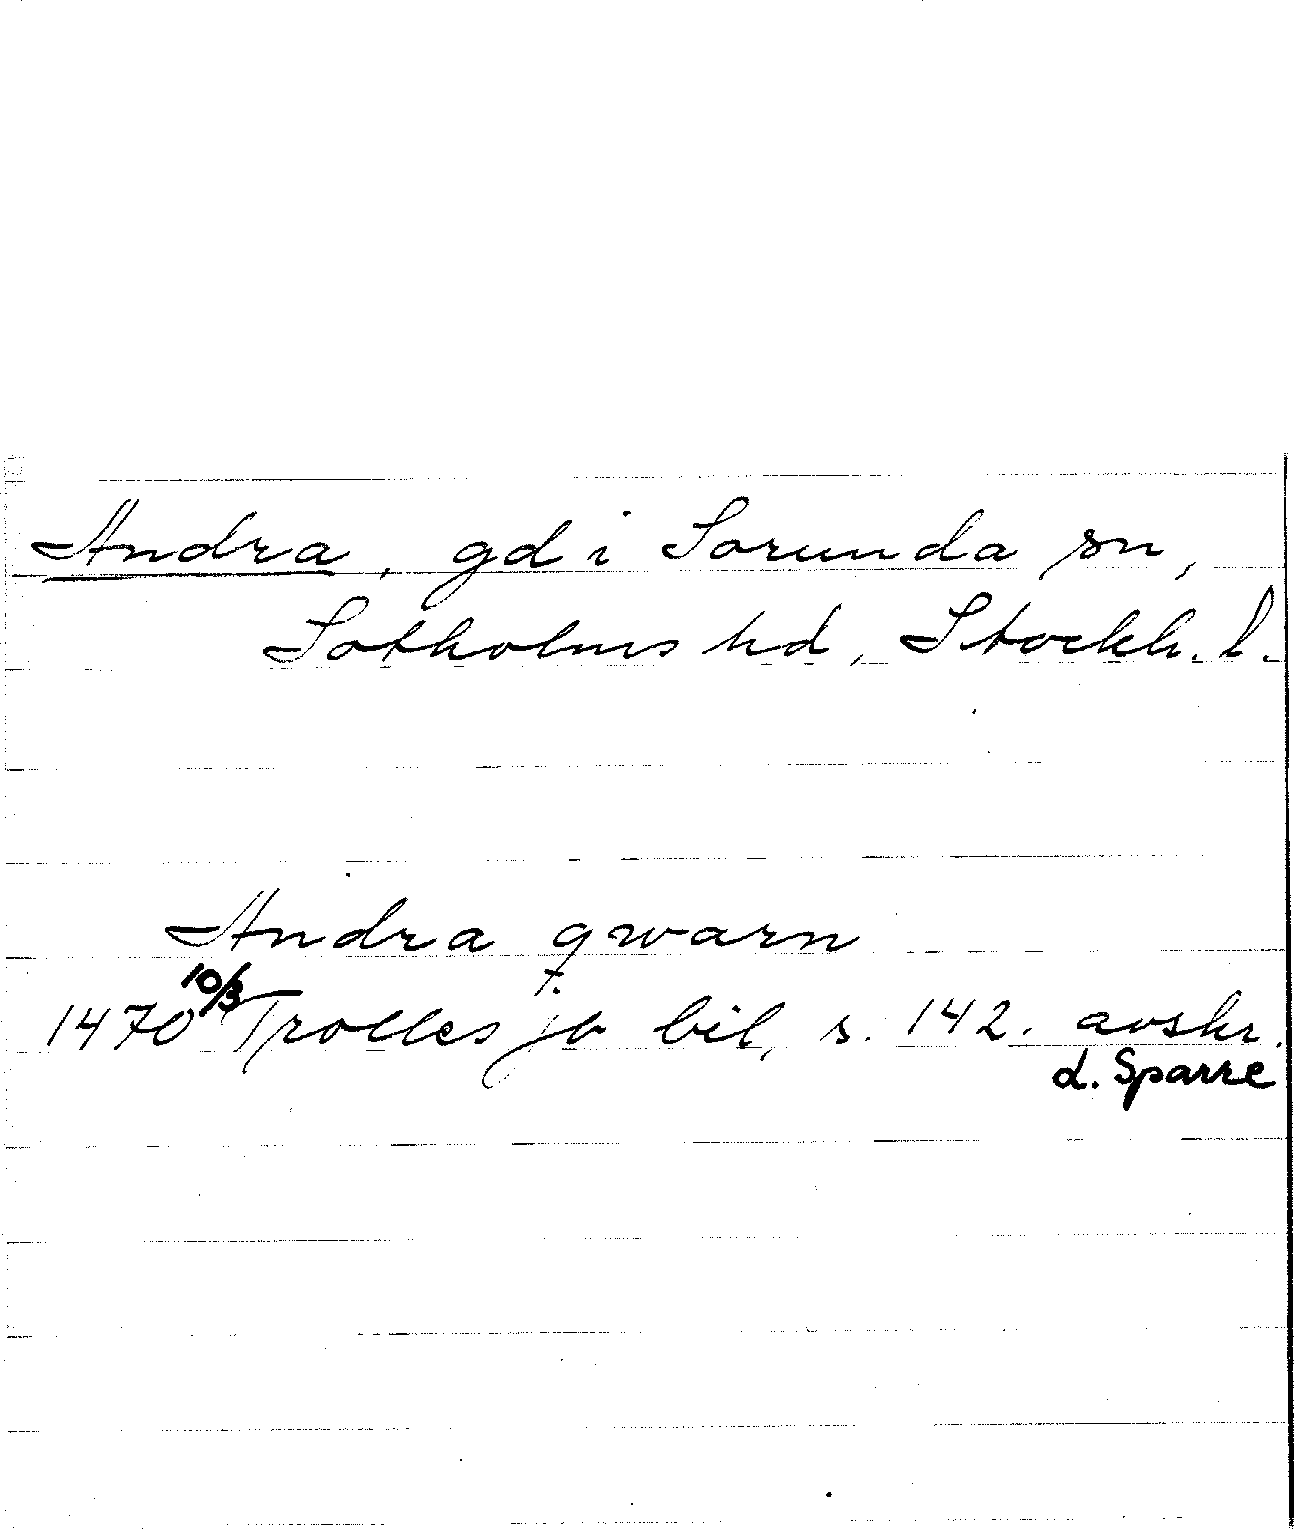 Andra, gd i Sorunda sn,
Sotholms hd, Stockh. l.
Andra qwarn
1470 10/3 Trolles jb bil, s. 142. avskr.
d. Sparre